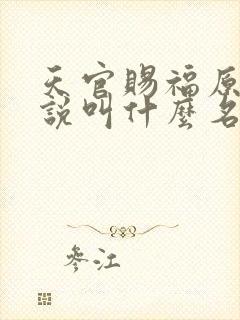 天官賜福原
說叫什麼名
參江